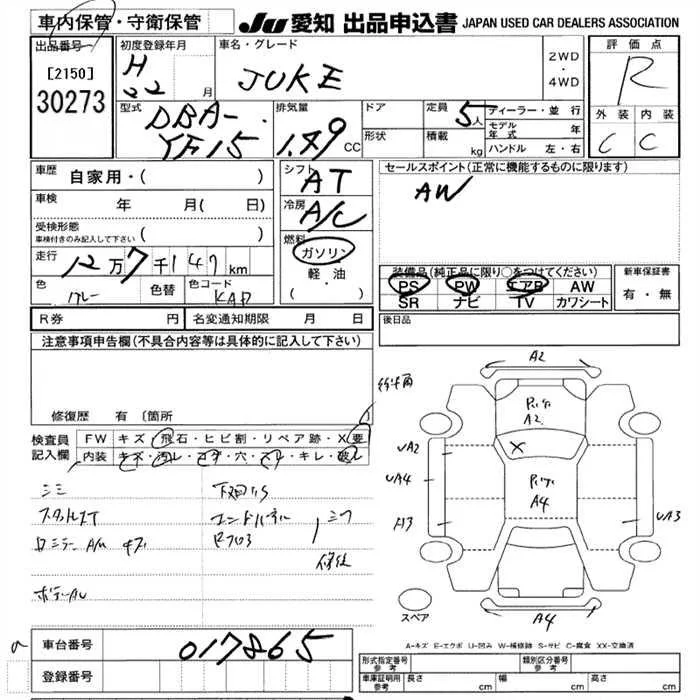 車内保管・守衛保管
JU 愛知 出品申込書 JAPAN USED CAR DEALERS ASSOCIATION
出品番号
[2150]
30273
初度登録年月
H
22 月
車名・グレード
JUKE
2WD
・
4WD
評価点
R
外装 内装
C C
型式
DBA-
YF15
排気量
1.49 CC
ドア
形状
定員 5人
積載 kg
ディーラー・並行
モデル年式 年
ハンドル 左・右
車歴
自家用・( )
車検
年 月( 日)
受検形態
車検付きのみ記入して下さい ( )
走行
12万7千147km
色
グレー
色替
色コード
KAD
シフト
AT
冷房
A/C
燃料
ガソリン
軽油
( ・ )
セールスポイント(正常に機能するものに限ります)
AW
装備品(純正品に限り○をつけてください)
PS PW エアB AW
SR ナビ TV カワシート
新車保証書
有・無
R券 円 名変通知期限 月 日
後日品
注意事項申告欄(不具合内容等は具体的に記入して下さい)
修復歴 有 〔箇所
検査員
記入欄
FW キズ・飛石・ヒビ割・リペア跡・X要
内装 キズ・汚レ・コゲ・穴・スレ・キレ・破レ
A2
A2
X
A4
UA2
UA4
UA3
A4
スペア
A-キズ E-エクボ U-凹み W-補修跡 S-サビ C-腐食 XX-交換済
車台番号
017865
登録番号
形式指定番号
参考
類別区分番号
参考
車庫証明用
参考
長さ cm 幅 cm 高さ cm